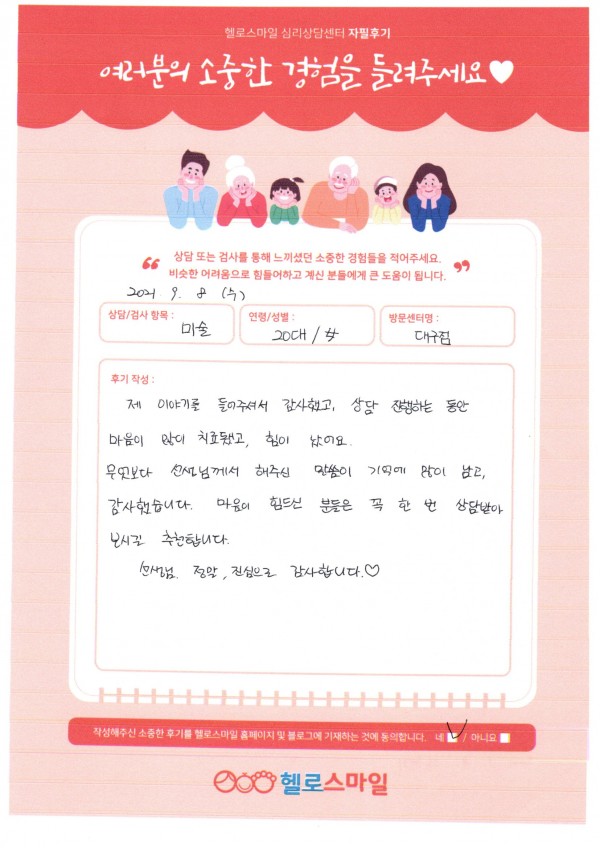 헬로스마일 심리상담센터 자필후기
여러분의 소중한 경험을 들려주세요♥
“ 상담 또는 검사를 통해 느끼셨던 소중한 경험들을 적어주세요.
비슷한 어려움으로 힘들어하고 계신 분들에게 큰 도움이 됩니다. ”
2021 9. 8 (수)
상담/검사 항목 : 미술
연령/성별 : 20대 / 女
방문센터명 : 대구점
후기 작성 :
제 이야기를 들어주셔서 감사했고, 상담 진행하는 동안
마음이 많이 치료됐고, 힘이 났어요.
무엇보다 선생님께서 해주신 말씀이 기억에 많이 남고,
감사했습니다. 마음이 힘드신 분들은 꼭 한 번 상담받아
보시길 추천합니다.
선생님. 정말, 진심으로 감사합니다.♡
작성해주신 소중한 후기를 헬로스마일 홈페이지 및 블로그에 기재하는 것에 동의합니다. 네 / 아니요
헬로스마일